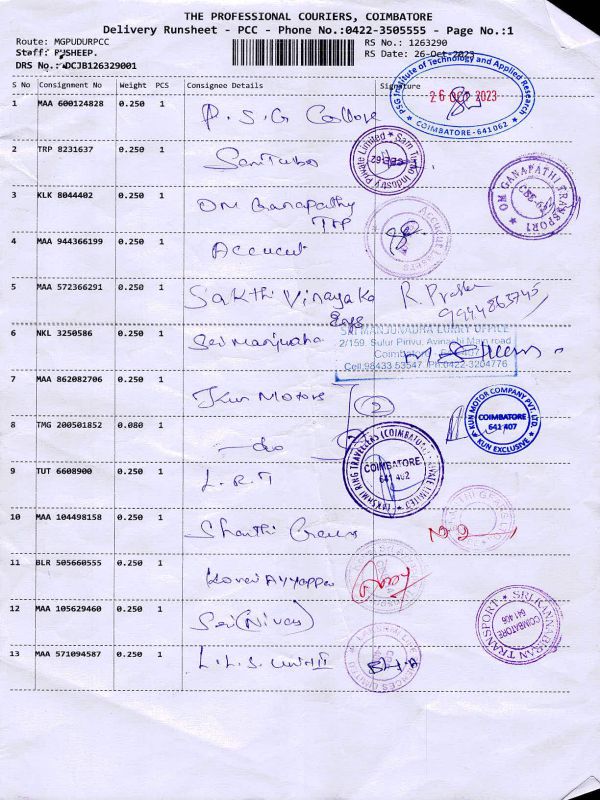 THE PROFESSIONAL COURIERS, COIMBATORE
Delivery Runsheet - PCC - Phone No.:0422-3505555 - Page No.:1
Route: MGPUDURPCC RS No.: 1263290
Staff: PUSHEEP. RS Date: 26-Oct-2023
DRS No.: DCJB126329001
S No Consignment No Weight PCS Consignee Details Signature
PSG Institute of Technology and Applied Research
26 OCT 2023
COIMBATORE-641062
1 MAA 600124828 0.250 1 P.S.G College
2 TRP 8231637 0.250 1 Sam Turbo
Sam Turbo Industry Private Limited
3 KLK 8044402 0.250 1 Om Ganapathy
TRP
OM GANAPATHI TRANSPORT
4 MAA 944366199 0.250 1 Accucut
5 MAA 572366291 0.250 1 Sakthi Vinayaka
Eng
6 NKL 3250586 0.250 1 Sri Manjunatha
SRI MANJUNADHA LORRY OFFICE
2/159, Sulur Pirivu, Avinashi Main road
Coimbatore 407
Cell.98433 53547 Ph:0422-3204776
7 MAA 862082706 0.250 1 Kun Motors 2
KUN MOTOR COMPANY PVT. LTD.
COIMBATORE
641 407
KUN EXCLUSIVE
8 TMG 200501852 0.080 1 -do
LAKSHMI RING TRAVELLERS (COIMBATORE) PRIVATE LIMITED
COIMBATORE
641 402
9 TUT 6608900 0.250 1 L.R.T
10 MAA 104498158 0.250 1 Shanthi Gears
11 BLR 505660555 0.250 1 Konei Ayyappa
12 MAA 105629460 0.250 1 Sri (Nivas)
SRI KANNABIRAN TRANSPORT
COIMBATORE
641 406
13 MAA 571094587 0.250 1 L.L.S. Unit II